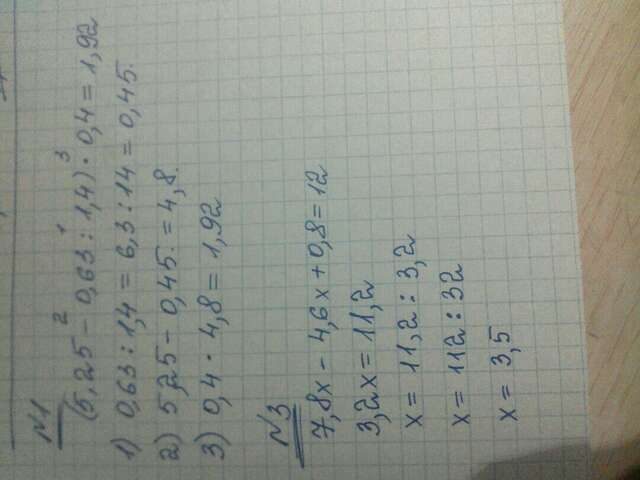 №1
(5,25 - 0,63 : 1,4) · 0,4 = 1,92
1) 0,63 : 1,4 = 6,3 : 14 = 0,45.
2) 5,25 - 0,45. = 4,8.
3) 0,4 · 4,8 = 1,92
№3
7,8x - 4,6x + 0,8 = 12
3,2x = 11,2
x = 11,2 : 3,2
x = 112 : 32
x = 3,5